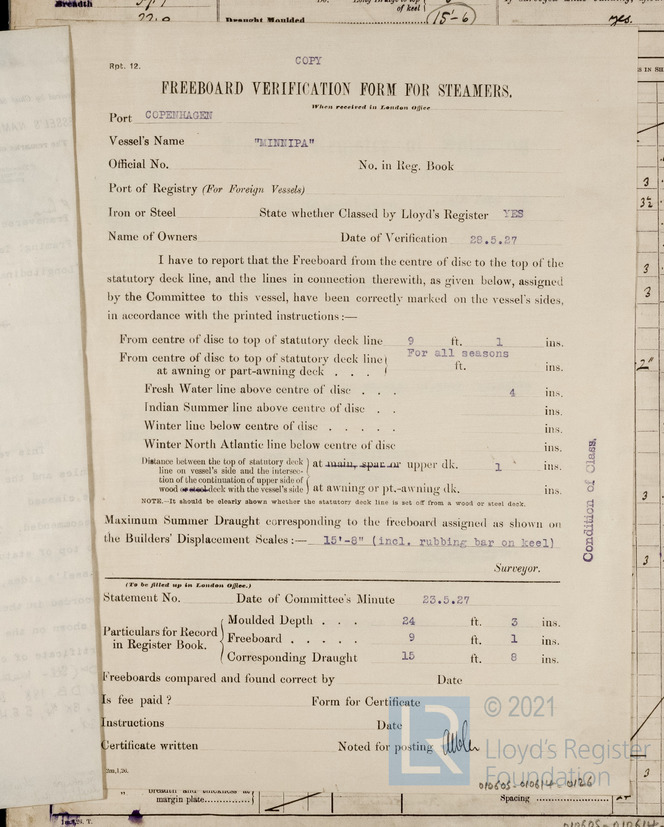 Breadth
22.0
Draught Moulded
of keel
15'-6
yes.
COPY
Rpt. 12.
FREEBOARD VERIFICATION FORM FOR STEAMERS.
When received in London Office
Port COPENHAGEN
Vessel's Name "MINNIPA"
Official No. No. in Reg. Book
Port of Registry (For Foreign Vessels)
Iron or Steel State whether Classed by Lloyd's Register YES
Name of Owners Date of Verification 28.5.27
I have to report that the Freeboard from the centre of disc to the top of the
statutory deck line, and the lines in connection therewith, as given below, assigned
by the Committee to this vessel, have been correctly marked on the vessel's sides,
in accordance with the printed instructions:—
From centre of disc to top of statutory deck line 9 ft. 1 ins.
For all seasons
From centre of disc to top of statutory deck line
at awning or part-awning deck . . . ft. ins.
Fresh Water line above centre of disc . . . 4 ins.
Indian Summer line above centre of disc . . ins.
Winter line below centre of disc . . . . . ins.
Winter North Atlantic line below centre of disc ins.
Distance between the top of statutory deck
line on vessel's side and the intersec-
tion of the continuation of upper side of
wood or steel deck with the vessel's side
at main, spar or upper dk. 1 ins.
at awning or pt.-awning dk. ins.
NOTE.—It should be clearly shown whether the statutory deck line is set off from a wood or steel deck.
Maximum Summer Draught corresponding to the freeboard assigned as shown on
the Builders' Displacement Scales:— 15'-8" (incl. rubbing bar on keel)
Surveyor.
Condition of Class.
(To be filled up in London Office.)
Statement No. Date of Committee's Minute 23.5.27
Particulars for Record
in Register Book.
Moulded Depth . . . 24 ft. 3 ins.
Freeboard . . . . . 9 ft. 1 ins.
Corresponding Draught 15 ft. 8 ins.
Freeboards compared and found correct by Date
Is fee paid ? Form for Certificate
Instructions Date
Certificate written Noted for posting
2m,1,26.
© 2021
Lloyd's Register
Foundation
LR
010605-010614-0126
margin plate
Spacing